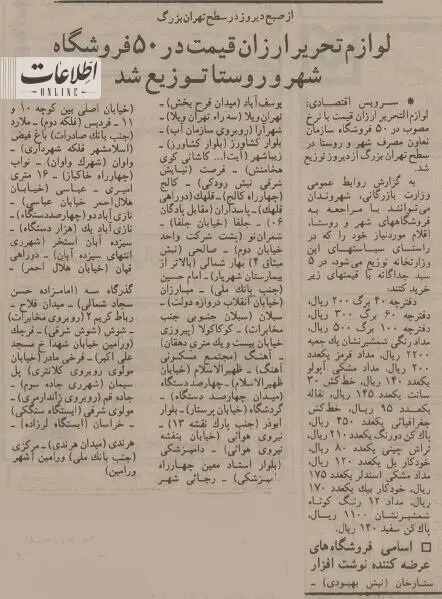 از صبح دیروز در سطح تهران بزرگ
لوازم تحریر ارزان قیمت در ۵۰ فروشگاه
شهر و روستا توزیع شد
اطلاعات
ONLINE
* سرویس اقتصادی:
لوازم‌التحریر ارزان قیمت با نرخ
مصوب در ۵۰ فروشگاه سازمان
تعاون مصرف شهر و روستا در
سطح تهران بزرگ از دیروز توزیع
شد.
به گزارش روابط عمومی
وزارت بازرگانی، شهروندان
می‌توانند با مراجعه به
فروشگاههای شهر و روستا،
اقلام موردنیاز خود را که در
راستای سیاستهای این
وزارتخانه توزیع می‌شود، در ۵
سبد جداگانه با قیمتهای زیر
خرید کنند.
دفترچه ۴۰ برگ ۲۰۰ ریال،
دفترچه ۶۰ برگ ۳۰۰ ریال،
دفترچه ۱۰۰ برگ ۵۰۰ ریال،
مداد رنگی شمشیرنشان یک جعبه
۲۲۰۰ ریال، مداد قرمز یکعدد
۱۲۰ ریال، مداد مشکی آپولو
یکعدد ۱۴۰ ریال، خط‌کش ۳۰
سانت یکعدد ۱۴۵ ریال، نقاله
یکعدد ۹۵ ریال، خط‌کش
جغرافیائی یکعدد ۴۵۰ ریال،
پاک‌کن دورنگ یکعدد ۲۱۰ ریال،
تراش چینی یکعدد ۸۰ ریال،
خودکار بل یکعدد ۱۲۰ ریال،
مداد مشکی استدلر یکعدد ۱۷۵
ریال، خودکار بیک یکعدد ۱۷۰
ریال، مداد ۱۲ رنگ کوتاه
شمشیرنشان ۱۱۰۰ ریال،
پاک‌کن سفید ۱۴۰ ریال.
□ اسامی فروشگاه‌های
عرضه کننده نوشت افزار
ستارخان (نبش بهبودی) ـ
یوسف‌آباد (میدان فرح بخش) ـ
تهران‌ویلا (سه‌راه تهران ویلا) ـ
شهرآرا (روبروی سازمان آب) ـ
بلوار کشاورز (بلوار کشاورز) ـ
زیباشهر (آیت‌ا... کاشانی کوی
هخامنش) ـ فرصت (تیایش
شرقی نبش رودکی) ـ کالج
(چهارراه کالج) ـ قلهک (دوراهی
قلهک) ـ پاسداران (مقابل پادگان
۰۶) ـ جلفا (خیابان جلفا) ـ
شمران‌نو (پشت شرکت واحد
میدان دوم) ـ صالحی (نبش
میثاق ۴) بهار شمالی (بالاتر از
بیمارستان شهریار) ـ امام حسین
(جنب بانک ملی) ـ مبارزان
(خیابان انقلاب دروازه دولت) ـ
سبلان (سبلان جنوبی جنب
مخابرات) ـ کوکاکولا (پیروزی
خیابان بیست ویک متری دهقان)
ـ آهنگ (مجتمع مسکونی
آهنگ) ـ ظهیرالاسلام (خیابان
ظهیرالاسلام) ـ چهارصددستگاه
(میدان چهارصد دستگاه) ـ
گردشگاه (خیابان پرستار) ـ بلوار
ابوذر (جنب پارک نقشه ۱۳) ـ
نیروی هوائی (خیابان بنفشه
نیروی هوائی) ـ دامپزشکی
(بلوار استاد معین چهارراه
دامپزشکی) ـ رجائی شهر
(خیابان اصلی بین کوچه ۱۰ و
۱۱ ـ فردیس (فلکه دوم) ـ ملارد
(جنب بانک صادرات) باغ فیض
(اسلامشهر فلکه شهرداری) ـ
واوان (شهرک واوان) ـ نواب
(چهارراه خاکباز) ـ ۱۶ متری
امیری ـ عباسی (خیابان
هلال‌احمر خیابان عباسی) ـ
نازی‌آباد دو (چهارصددستگاه) ـ
نازی‌آباد یک (هزار دستگاه) ـ
سیزده آبان استخر (شهرری
انتهای سیزده آبان) ـ دوراهی
قپان (خیابان هلال احمر) ـ
گذرگاه سه (امامزاده حسن
سجاد شمالی) ـ میدان فلاح ـ
رباط کریم ۲ (روبروی مخابرات)
ـ شوش (شوش شرقی) ـ قرچک
(ورامین خیابان شهدا خ مسجد
علی اکبر) ـ فرخی مادر (خیابان
مولوی روبروی کلانتری) پل
سیمان (شهرری جاده سوم) ـ
جاده قم (روبروی ژاندارمری) ـ
مولوی شرقی (ایستگاه سنگکی)
ـ خراسان (ایستگاه لرزاده) ـ
هرندی (میدان هرندی) ـ مرکزی
(جنب بانک ملی) ورامین (شهر
ورامین)